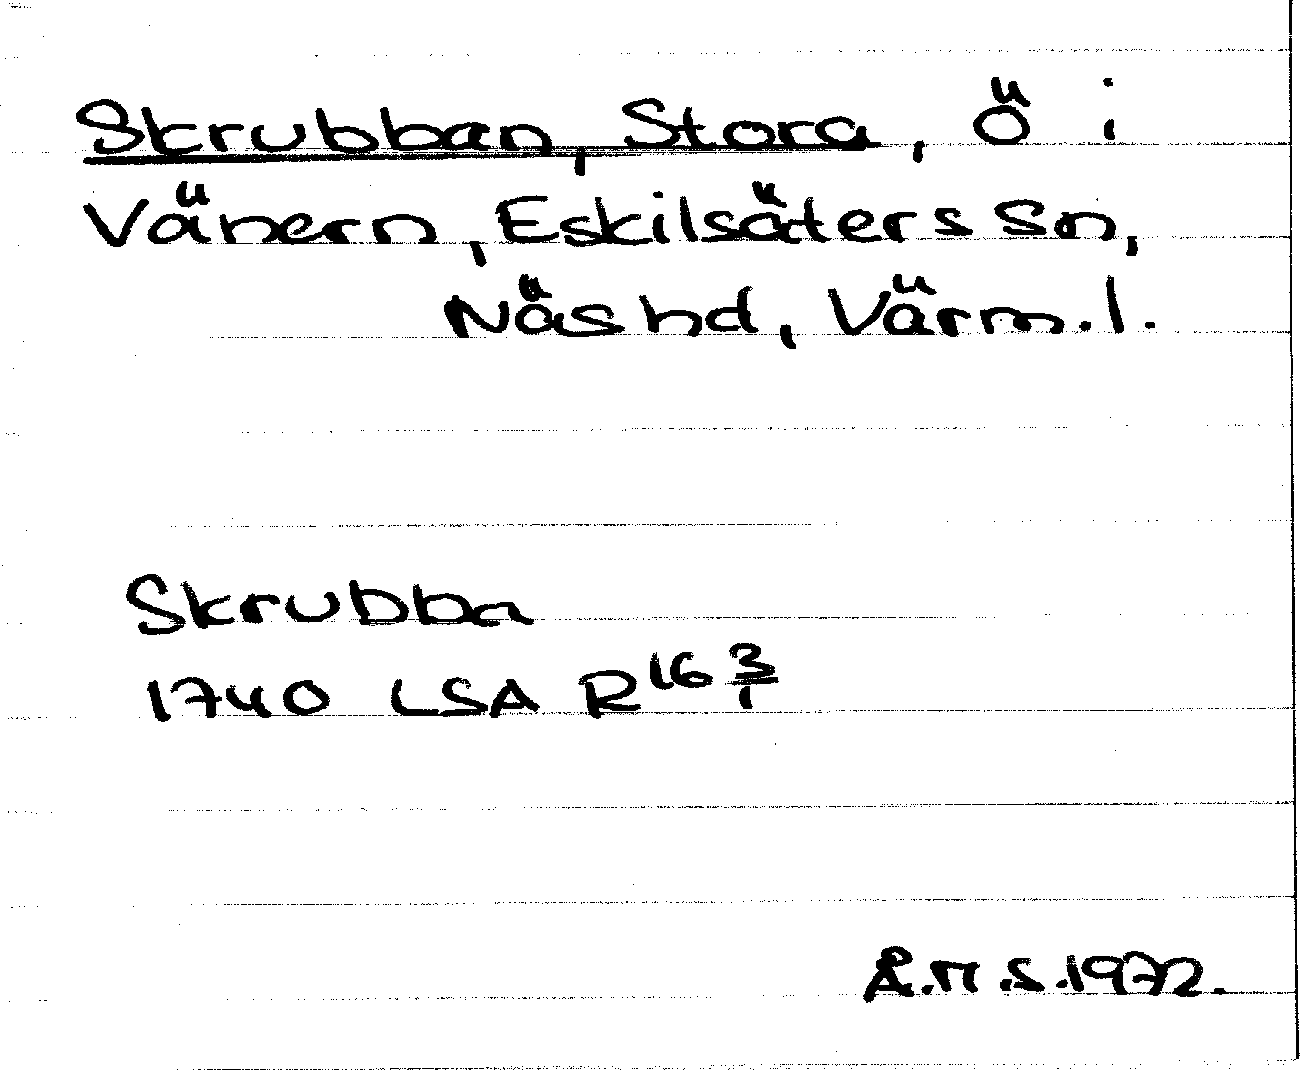 Skrubban, Stora, Ö i
Vänern, Eskilsäters Sn,
Näs hd, Värm.l.
Skrubba
1740 LSA R16 3/1
Å.M.S.1972.